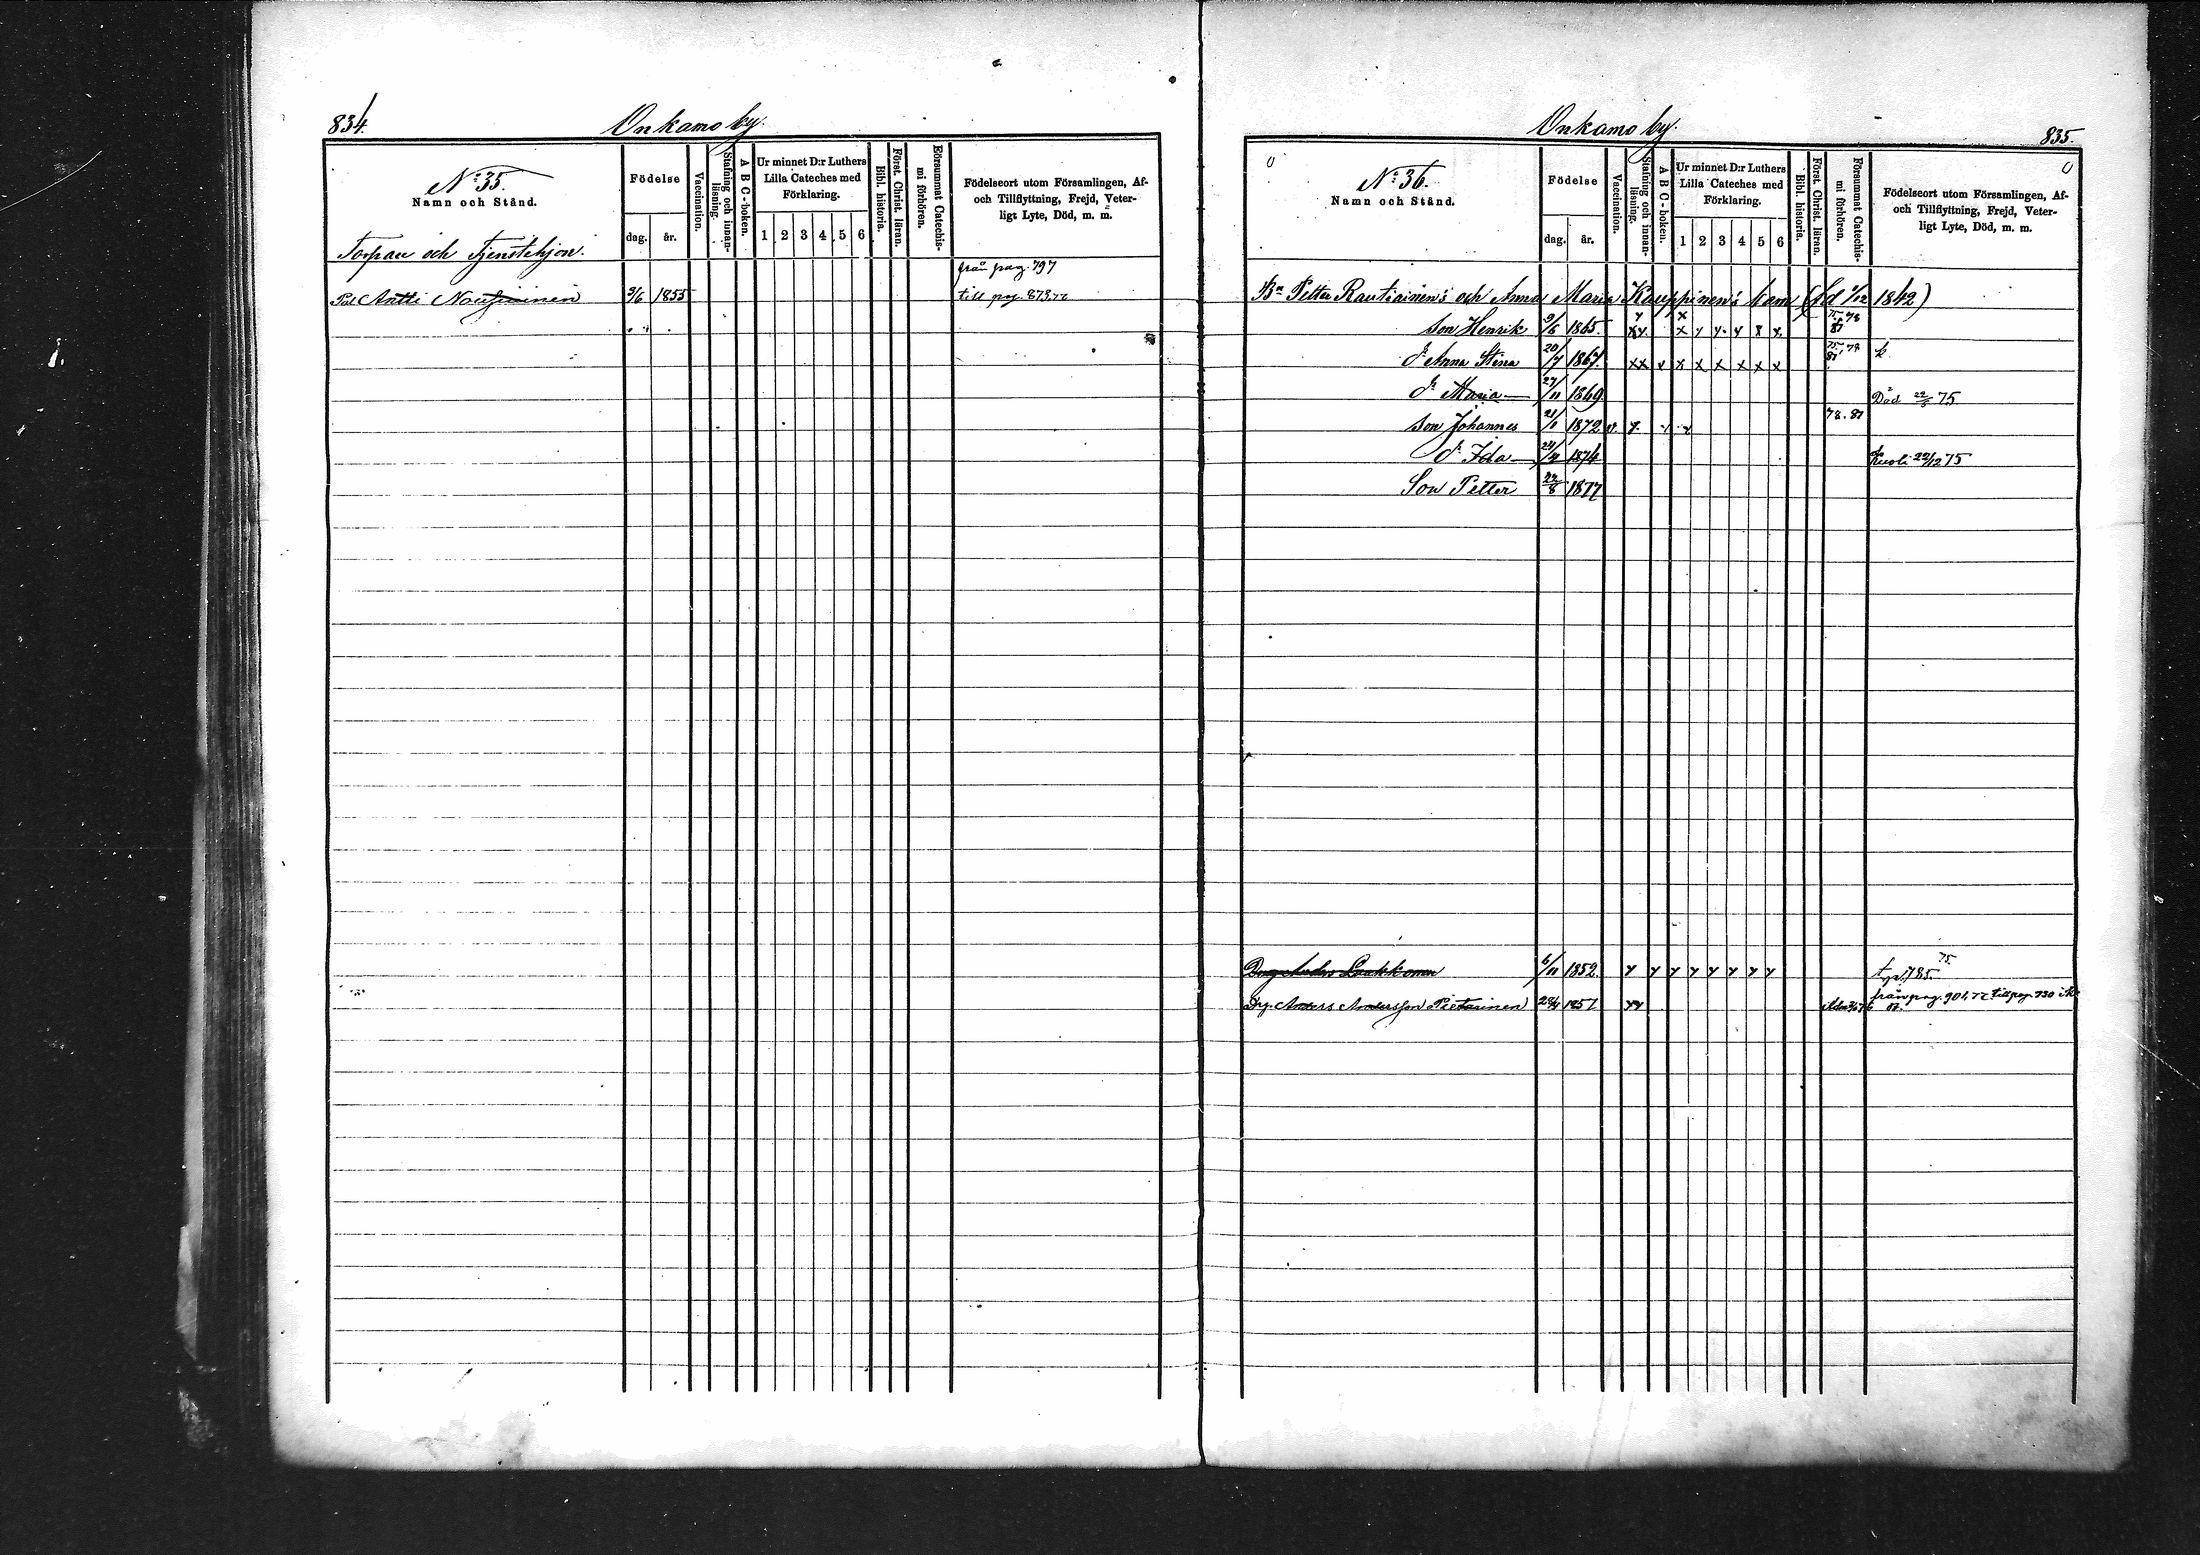 834.
Onkamo by.
N:o 35.
Namn och Stånd.
Födelse
dag.
år.
Vaccination.
Stafning och innan-
läsning.
A B C-boken.
Ur minnet D:r Luthers
Lilla Cateches med
Förklaring.
1 2 3 4 5 6
Bibl. historia.
Först. Christ. läran.
Försummat Catechis-
mi förhören.
Födelseort utom Församlingen, Af-
och Tillflyttning, Frejd, Veter-
ligt Lyte, Död, m. m.
Torpare och Tjenstehjon.
från pag. 797
Antti Nousiainen 3/6 1855 till pag. 873,
Onkamo by.
835.
N:o 36.
Namn och Stånd.
Födelse
dag.
år.
Vaccination.
Stafning och innan-
läsning.
A B C-boken.
Ur minnet D:r Luthers
Lilla Cateches med
Förklaring.
1 2 3 4 5 6
Bibl. historia.
Först. Christ. läran.
Försummat Catechis-
mi förhören.
Födelseort utom Församlingen, Af-
och Tillflyttning, Frejd, Veter-
ligt Lyte, Död, m. m.
Bn Petter Rautiainen's och Anna Maria Kauppinen's barn (fd 1/12 1842)
Son Henrik 9/6 1865. x x y x y y y x x 75, 78 81
dr Anna Stina 20/7 1867. x x x x x x x x x 75, 78 81 k
dr Maria 27/11 1869 Död 22/5 75
Son Johannes 21/1 1872 v. y. y y 78. 81
dr Ida 24/4 1874 Kuoli 22/12 75
Son Petter 22/8 1877
Dreng Anders Laakkonen 6/11 1852. y y y y y y y y 785. 75.
Drg. Anders Andersson Pietarinen 28/4 1857 y y från pag. 901, 72 till pag. 730